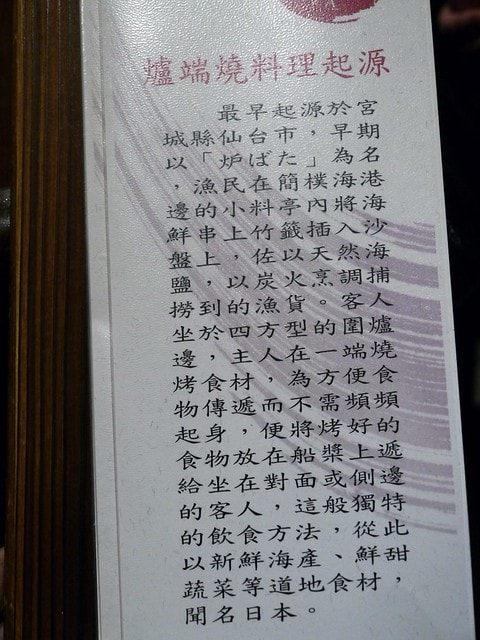 爐端燒料理起源
最早起源於宮
城縣仙台市，早期
以「炉ばた」為名
，漁民在簡樸海港
邊的小料亭內將海
鮮串上竹籤插入沙
盤上，佐以天然海
鹽，以炭火烹調捕
撈到的漁貨。客人
坐於四方型的圍爐
邊，主人在一端燒
烤食材，為方便食
物傳遞而不需頻頻
起身，便將烤好的
食物放在船槳上遞
給坐在對面或側邊
的客人，這般獨特
的飲食方法，從此
以新鮮海產、鮮甜
蔬菜等道地食材，
聞名日本。